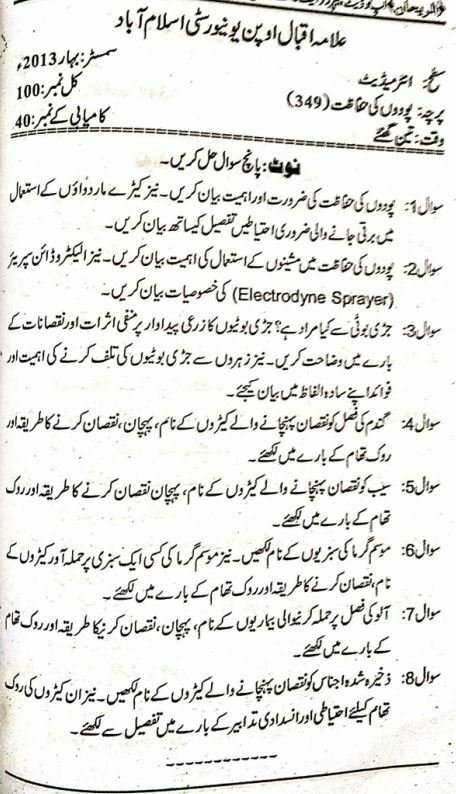 علامہ اقبال اوپن یونیورسٹی اسلام آباد
سطح: انٹرمیڈیٹ سمسٹر: بہار 2013ء
پرچہ: پودوں کی حفاظت (349) کل نمبر: 100
وقت: تین گھنٹے کامیابی کے نمبر: 40
نوٹ: پانچ سوال حل کریں۔
سوال 1: پودوں کی حفاظت کی ضرورت اور اہمیت بیان کریں۔ نیز کیڑے مار دواؤں کے استعمال
میں برتی جانے والی ضروری احتیاطیں تفصیل کیساتھ بیان کریں۔
سوال 2: پودوں کی حفاظت میں مشینوں کے استعمال کی اہمیت بیان کریں۔ نیز الیکٹروڈائن سپرئیر
(Electrodyne Sprayer) کی خصوصیات بیان کریں۔
سوال 3: جڑی بوٹی سے کیا مراد ہے؟ جڑی بوٹیوں کا زرعی پیداوار پر منفی اثرات اور نقصانات کے
بارے میں وضاحت کریں۔ نیز زہروں سے جڑی بوٹیوں کی تلف کرنے کی اہمیت اور
فوائد اپنے سادہ الفاظ میں بیان کیجئے۔
سوال 4: گندم کی فصل کو نقصان پہنچانے والے کیڑوں کے نام، پہچان، نقصان کرنے کا طریقہ اور
روک تھام کے بارے میں لکھئے۔
سوال 5: سیب کو نقصان پہنچانے والے کیڑوں کے نام، پہچان نقصان کرنے کا طریقہ اور روک
تھام کے بارے میں لکھئے۔
سوال 6: موسم گرما کی سبزیوں کے نام لکھیں۔ نیز موسم گرما کی کسی ایک سبزی پر حملہ آور کیڑوں کے
نام، نقصان کرنے کا طریقہ اور روک تھام کے بارے میں لکھئے۔
سوال 7: آلو کی فصل پر حملہ کرنیوالی بیماریوں کے نام، پہچان، نقصان کرنیکا طریقہ اور روک تھام
کے بارے میں لکھئے۔
سوال 8: ذخیرہ شدہ اجناس کو نقصان پہنچانے والے کیڑوں کے نام لکھیں۔ نیز ان کیڑوں کی روک
تھام کیلئے احتیاطی اور انسدادی تدابیر کے بارے میں تفصیل سے لکھئے۔